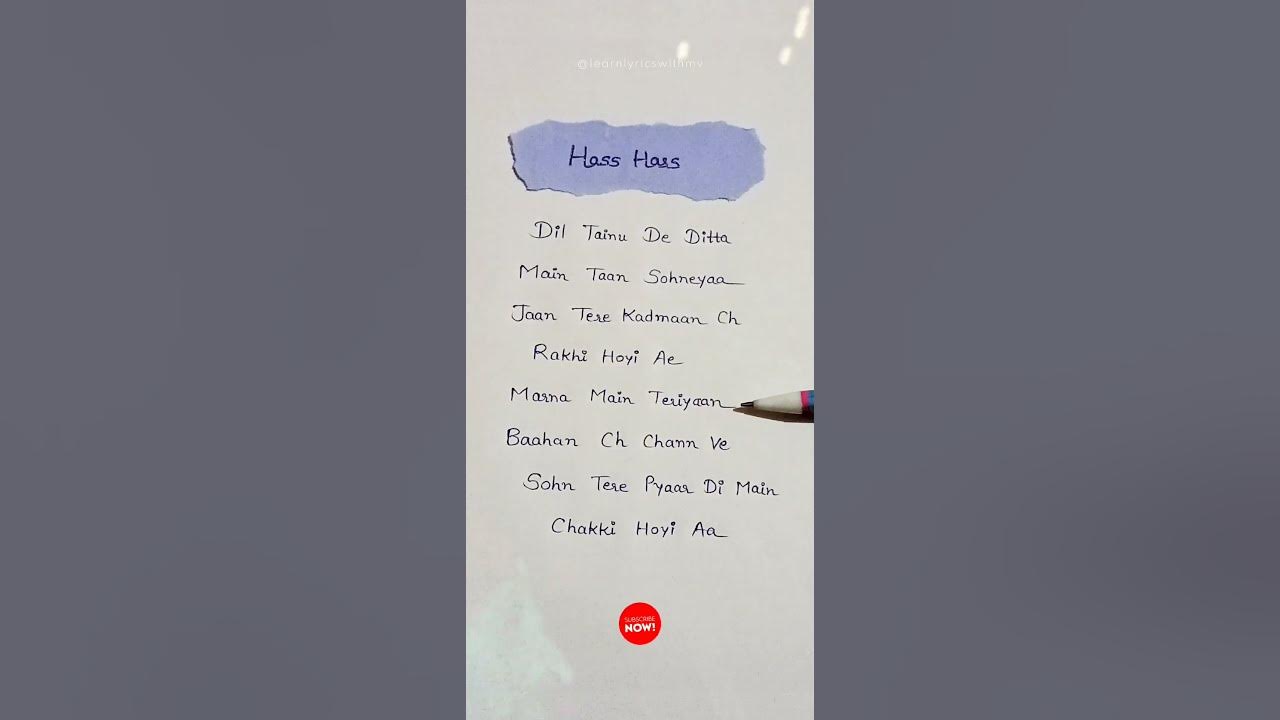 @learnlyricswithmv
Hass Hass
Dil Tainu De Ditta
Main Taan Sohneyaa
Jaan Tere Kadmaan Ch
Rakhi Hoyi Ae
Marna Main Teriyaan
Baahan Ch Chann Ve
Sohn Tere Pyaar Di Main
Chakki Hoyi Aa
SUBSCRIBE
NOW!